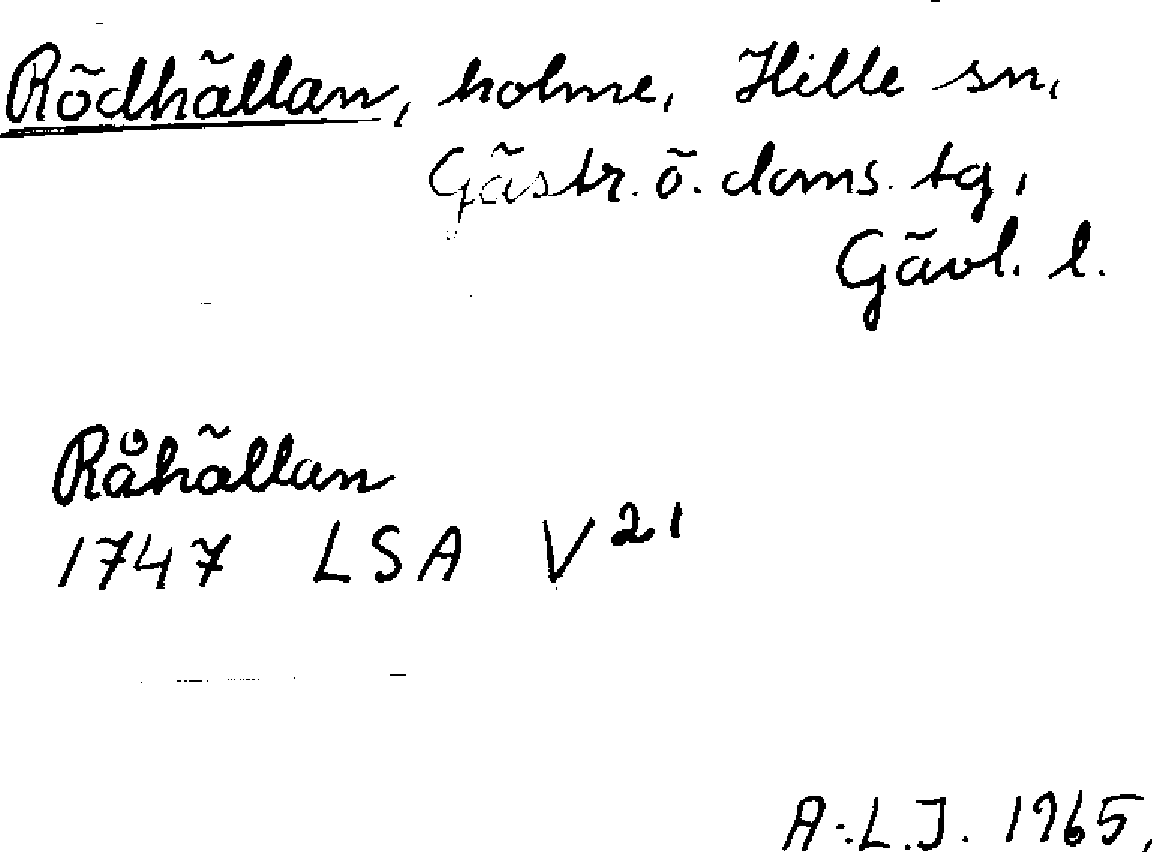 Rödhällan, holme, Hille sn,
Gästr. ö. doms. tg,
Gävl. l.
Råhällan
1747 LSA V²¹
A.L.J. 1965,